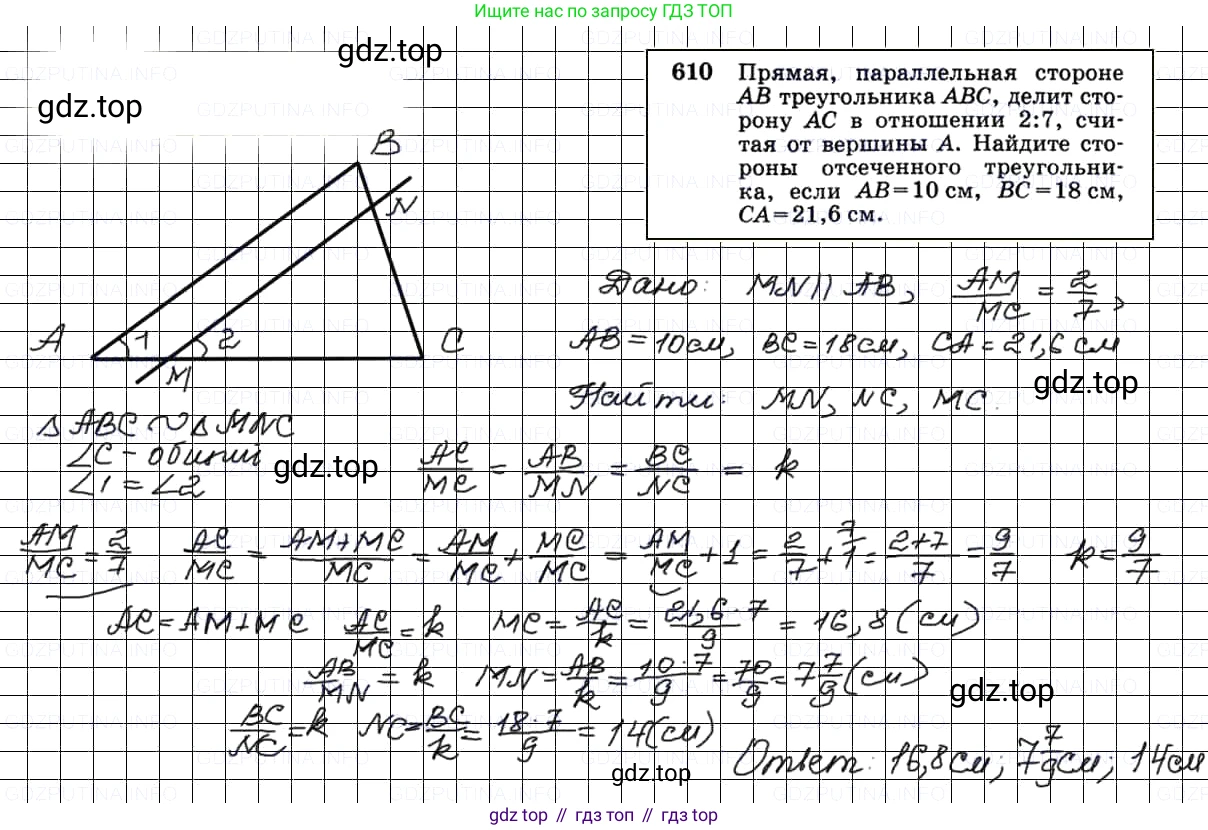 Ищите нас по запросу ГДЗ ТОП
gdz.top
gdz.top
610 Прямая, параллельная стороне
AB треугольника ABC, делит сто-
рону AC в отношении 2:7, счи-
тая от вершины A. Найдите сто-
роны отсеченного треугольни-
ка, если AB=10 см, BC=18 см,
CA=21,6 см.
B
N
A 1 2 C
M
Дано: MN || AB, AM/MC = 2/7,
AB=10см, BC=18см, CA=21,6 см
gdz.top
Найти: MN, NC, MC.
△ABC ∾ △MNC
∠C - общий
∠1 = ∠2
gdz.top
AC/MC = AB/MN = BC/NC = k
AM/MC = 2/7 AC/MC = AM+MC/MC = AM/MC + MC/MC = AM/MC + 1 = 2/7 + 7/1 = 2+7/7 = 9/7 k = 9/7
AC = AM+MC AC/MC = k MC = AC/k = 21,6·7/9 = 16,8 (см)
AB/MN = k MN = AB/k = 10·7/9 = 70/9 = 7 7/9 (см)
gdz.top
BC/NC = k NC = BC/k = 18·7/9 = 14 (см)
Ответ: 16,8см; 7 7/9 см; 14см
gdz.top
gdz top // гдз топ // gdz.top
GDZPUTINA.INFO